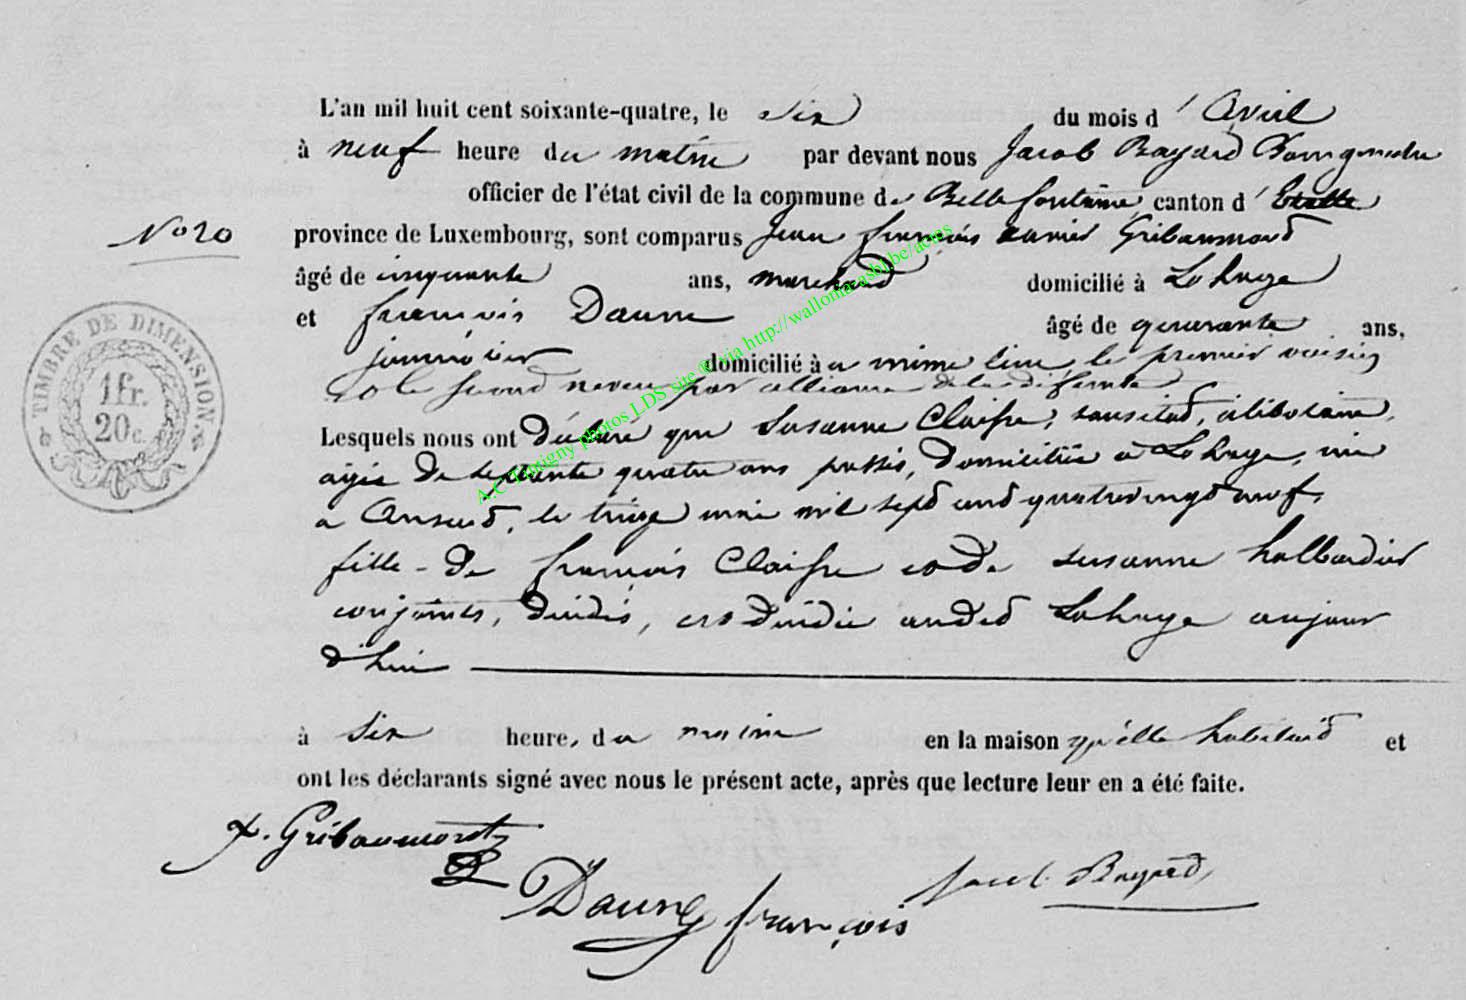 L'an mil huit cent soixante-quatre, le six du mois d'Avril
à neuf heure du matin par devant nous Jacob Bayard Bourgmestre
officier de l'état civil de la commune de Bellefontaine canton d'Etalle
N° 20 province de Luxembourg, sont comparus Jean françois xavier Gribaumont
âgé de cinquante ans, marchand domicilié à Lahage
et françois Daune âgé de quarante ans,
journalier domicilié à même lieu, le premier voisin
et le second neveu par alliance de la défunte
Lesquels nous ont déclaré que Susanne Claisse, célibataire,
agée de septante quatre ans passés, domiciliée a Lahage, née
a Ansart, le treize mai mil sept cent quatrevingt neuf,
fille de françois Claisse et de susanne halbardier
conjoints, décédés, est décédée audit Lahage aujour
d'hui
à six heure, du matin en la maison qu'elle habitait et
ont les déclarants signé avec nous le présent acte, après que lecture leur en a été faite.
x. Gribaumont
Daune françois
Jacob Bayard
TIMBRE DE DIMENSION.
1 fr.
20 c.
A.C Tintigny photos LDS site © via http://wallonia-asbl.be/actes